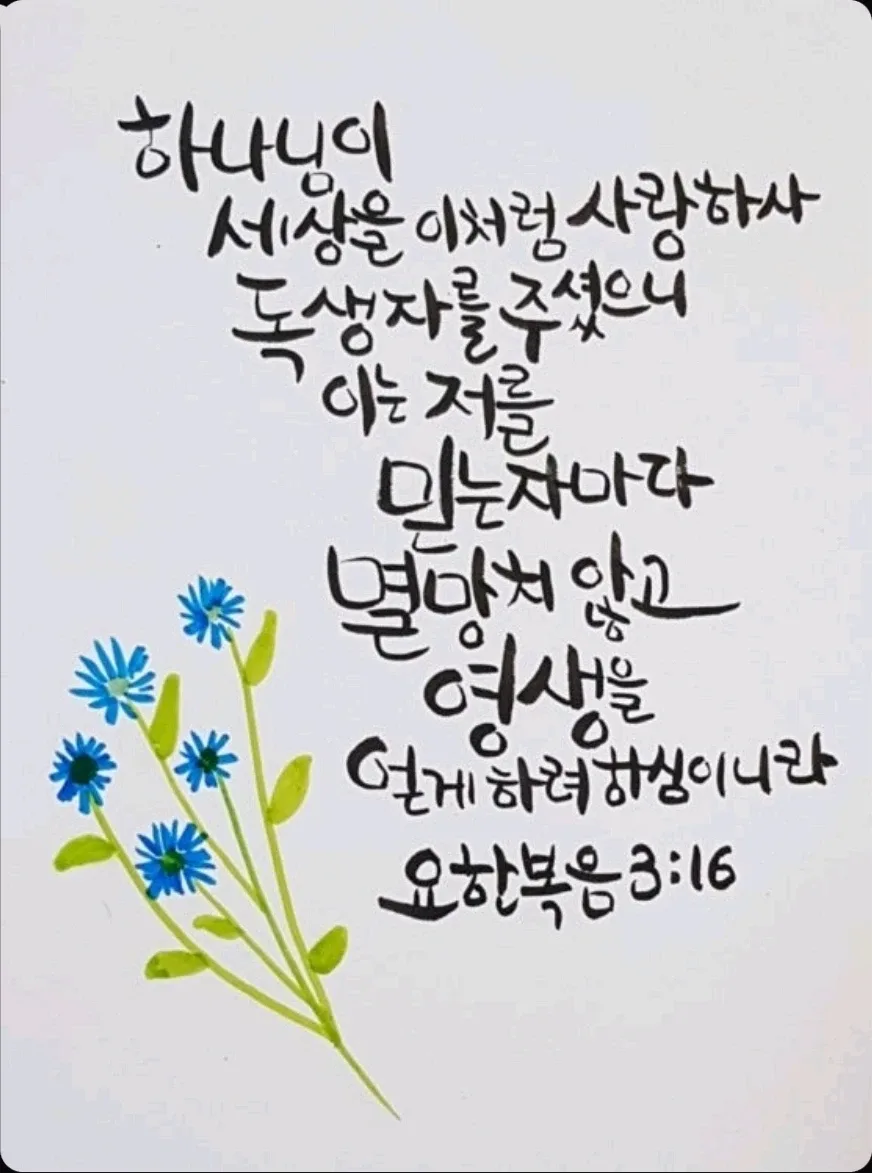 하나님이
세상을 이처럼 사랑하사
독생자를 주셨으니
이는 저를
믿는자마다
멸망치 않고
영생을
얻게 하려 하심이니라
요한복음 3:16